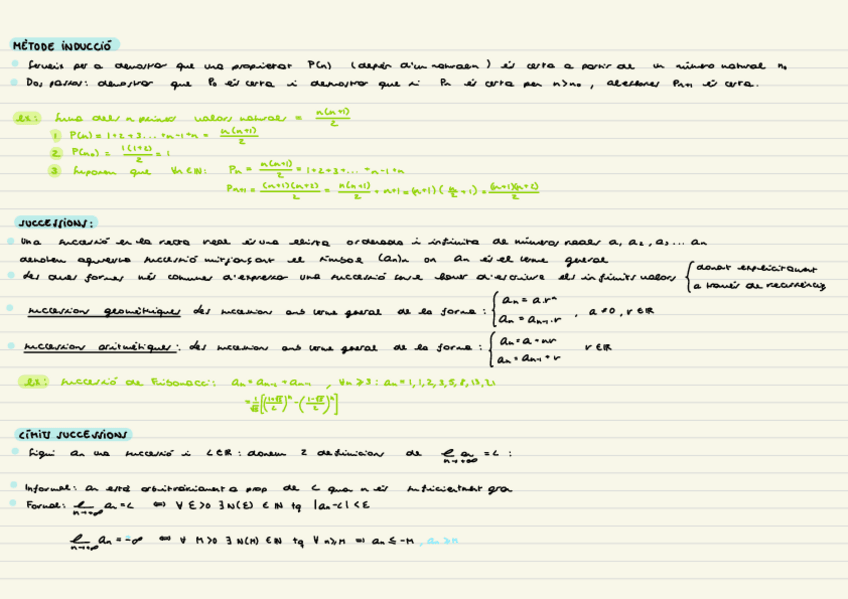 MÈTODE INDUCCIÓ
Serveix per a demostrar que una propietat P(n) (depèn d'un natural n) és certa a partir de un número natural n₀
Dos passos: demostrar que P₀ és certa i demostrar que si Pn és certa per n>n₀, aleshores Pn+1 és certa.
ex: Suma dels n primers valors naturals = n(n+1)/2
1 P(n) = 1+2+3...+n-1+n = n(n+1)/2
2 P(n₀) = 1(1+1)/2 = 1
3 Suposem que ∀n∈ℕ: Pn = n(n+1)/2 = 1+2+3+...+n-1+n
Pn+1 = (n+1)(n+2)/2 = n(n+1)/2 + n+1 = (n+1)(n/2+1) = (n+1)(n+2)/2
SUCCESSIONS:
Una successió en la recta real és una llista ordenada i infinita de números reals a₁, a₂, a₃... an
denotem aquesta successió mitjançant el símbol (an)n on an és el terme general
les dues formes més comunes d'expressar una successió són donar d'escriure els infinits valors { donat explícitament
a través de recurrència
successions geomètriques: les successions amb terme general de la forma: { an = a·rⁿ
an = an-1·r , a≠0, r∈ℝ
successions aritmètiques: les successions amb terme general de la forma: { an = a+nr
an = an-1+r r∈ℝ
ex: successió de Fibonacci: an = an-1+an-2 , ∀n≥3: an = 1,1,2,3,5,8,13,21
= 1/√5[((1+√5)/2)ⁿ-((1-√5)/2)ⁿ]
LÍMITS SUCCESSIONS
Sigui an una successió i L∈ℝ: donem 2 definicions de lim n→+∞ an = L :
Informal: an està arbitràriament a prop de L quan n és suficientment gran
Formal: lim n→+∞ an = L ⇔ ∀ε>0 ∃N(ε)∈ℕ tq |an-L|<ε
lim n→+∞ an = -∞ ⇔ ∀M>0 ∃N(M)∈ℕ tq ∀n≥N ⇒ an ≤ -M , an ≥ M